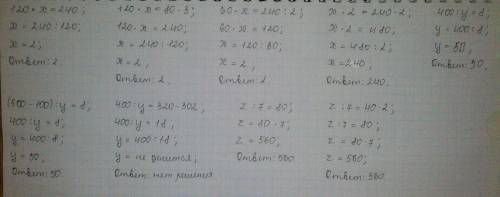 120 · x = 240;
x = 240 : 120;
x = 2;
Ответ: 2.
120 · x = 80 · 3;
120 · x = 240;
x = 240 : 120;
x = 2,
Ответ: 2.
x = 2;
Ответ: 2.
x · 2 = 240 · 2;
x · 2 = 480;
x = 480 : 2;
x = 240,
Ответ: 240.
400 : y = 8;
y = 400 : 8;
y = 50,
Ответ: 50.
(500 - 100) : y = 8;
400 : y = 8;
y = 400 : 8;
y = 50,
Ответ: 50
400 : y = 320 - 302;
400 : y = 18;
y = 400 : 18;
y = не решится;
Ответ: нет решения
z : 7 = 80;
z = 80 · 7;
z = 560;
Ответ: 560
z : 7 = 40 · 2;
z : 7 = 80;
z = 80 · 7;
z = 560;
Ответ: 560